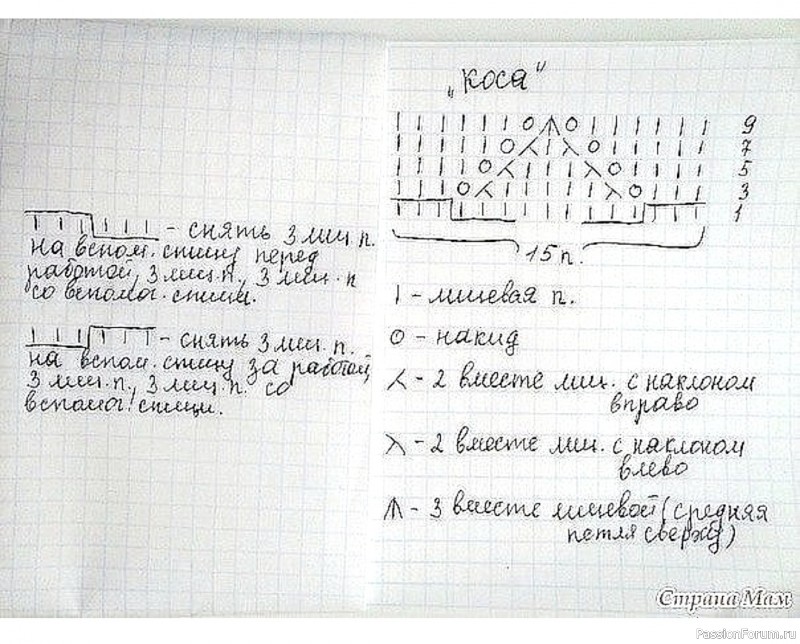 - снять 3 лиц п.
на вспом. спицу перед
работой, 3 лиц. п., 3 лиц. п
со вспомог. спицы.
- снять 3 лиц. п.
на вспом. спицу за работой,
3 лиц. п., 3 лиц. п. со
вспомог. спицы.
„коса“
9
7
5
3
1
15 п.
| - лицевая п.
О - накид
⋌ - 2 вместе лиц. с наклоном
вправо
⋋ - 2 вместе лиц. с наклоном
влево
- 3 вместе лицевой (средняя
петля сверху)
Страна Мам
PassionForum.ru